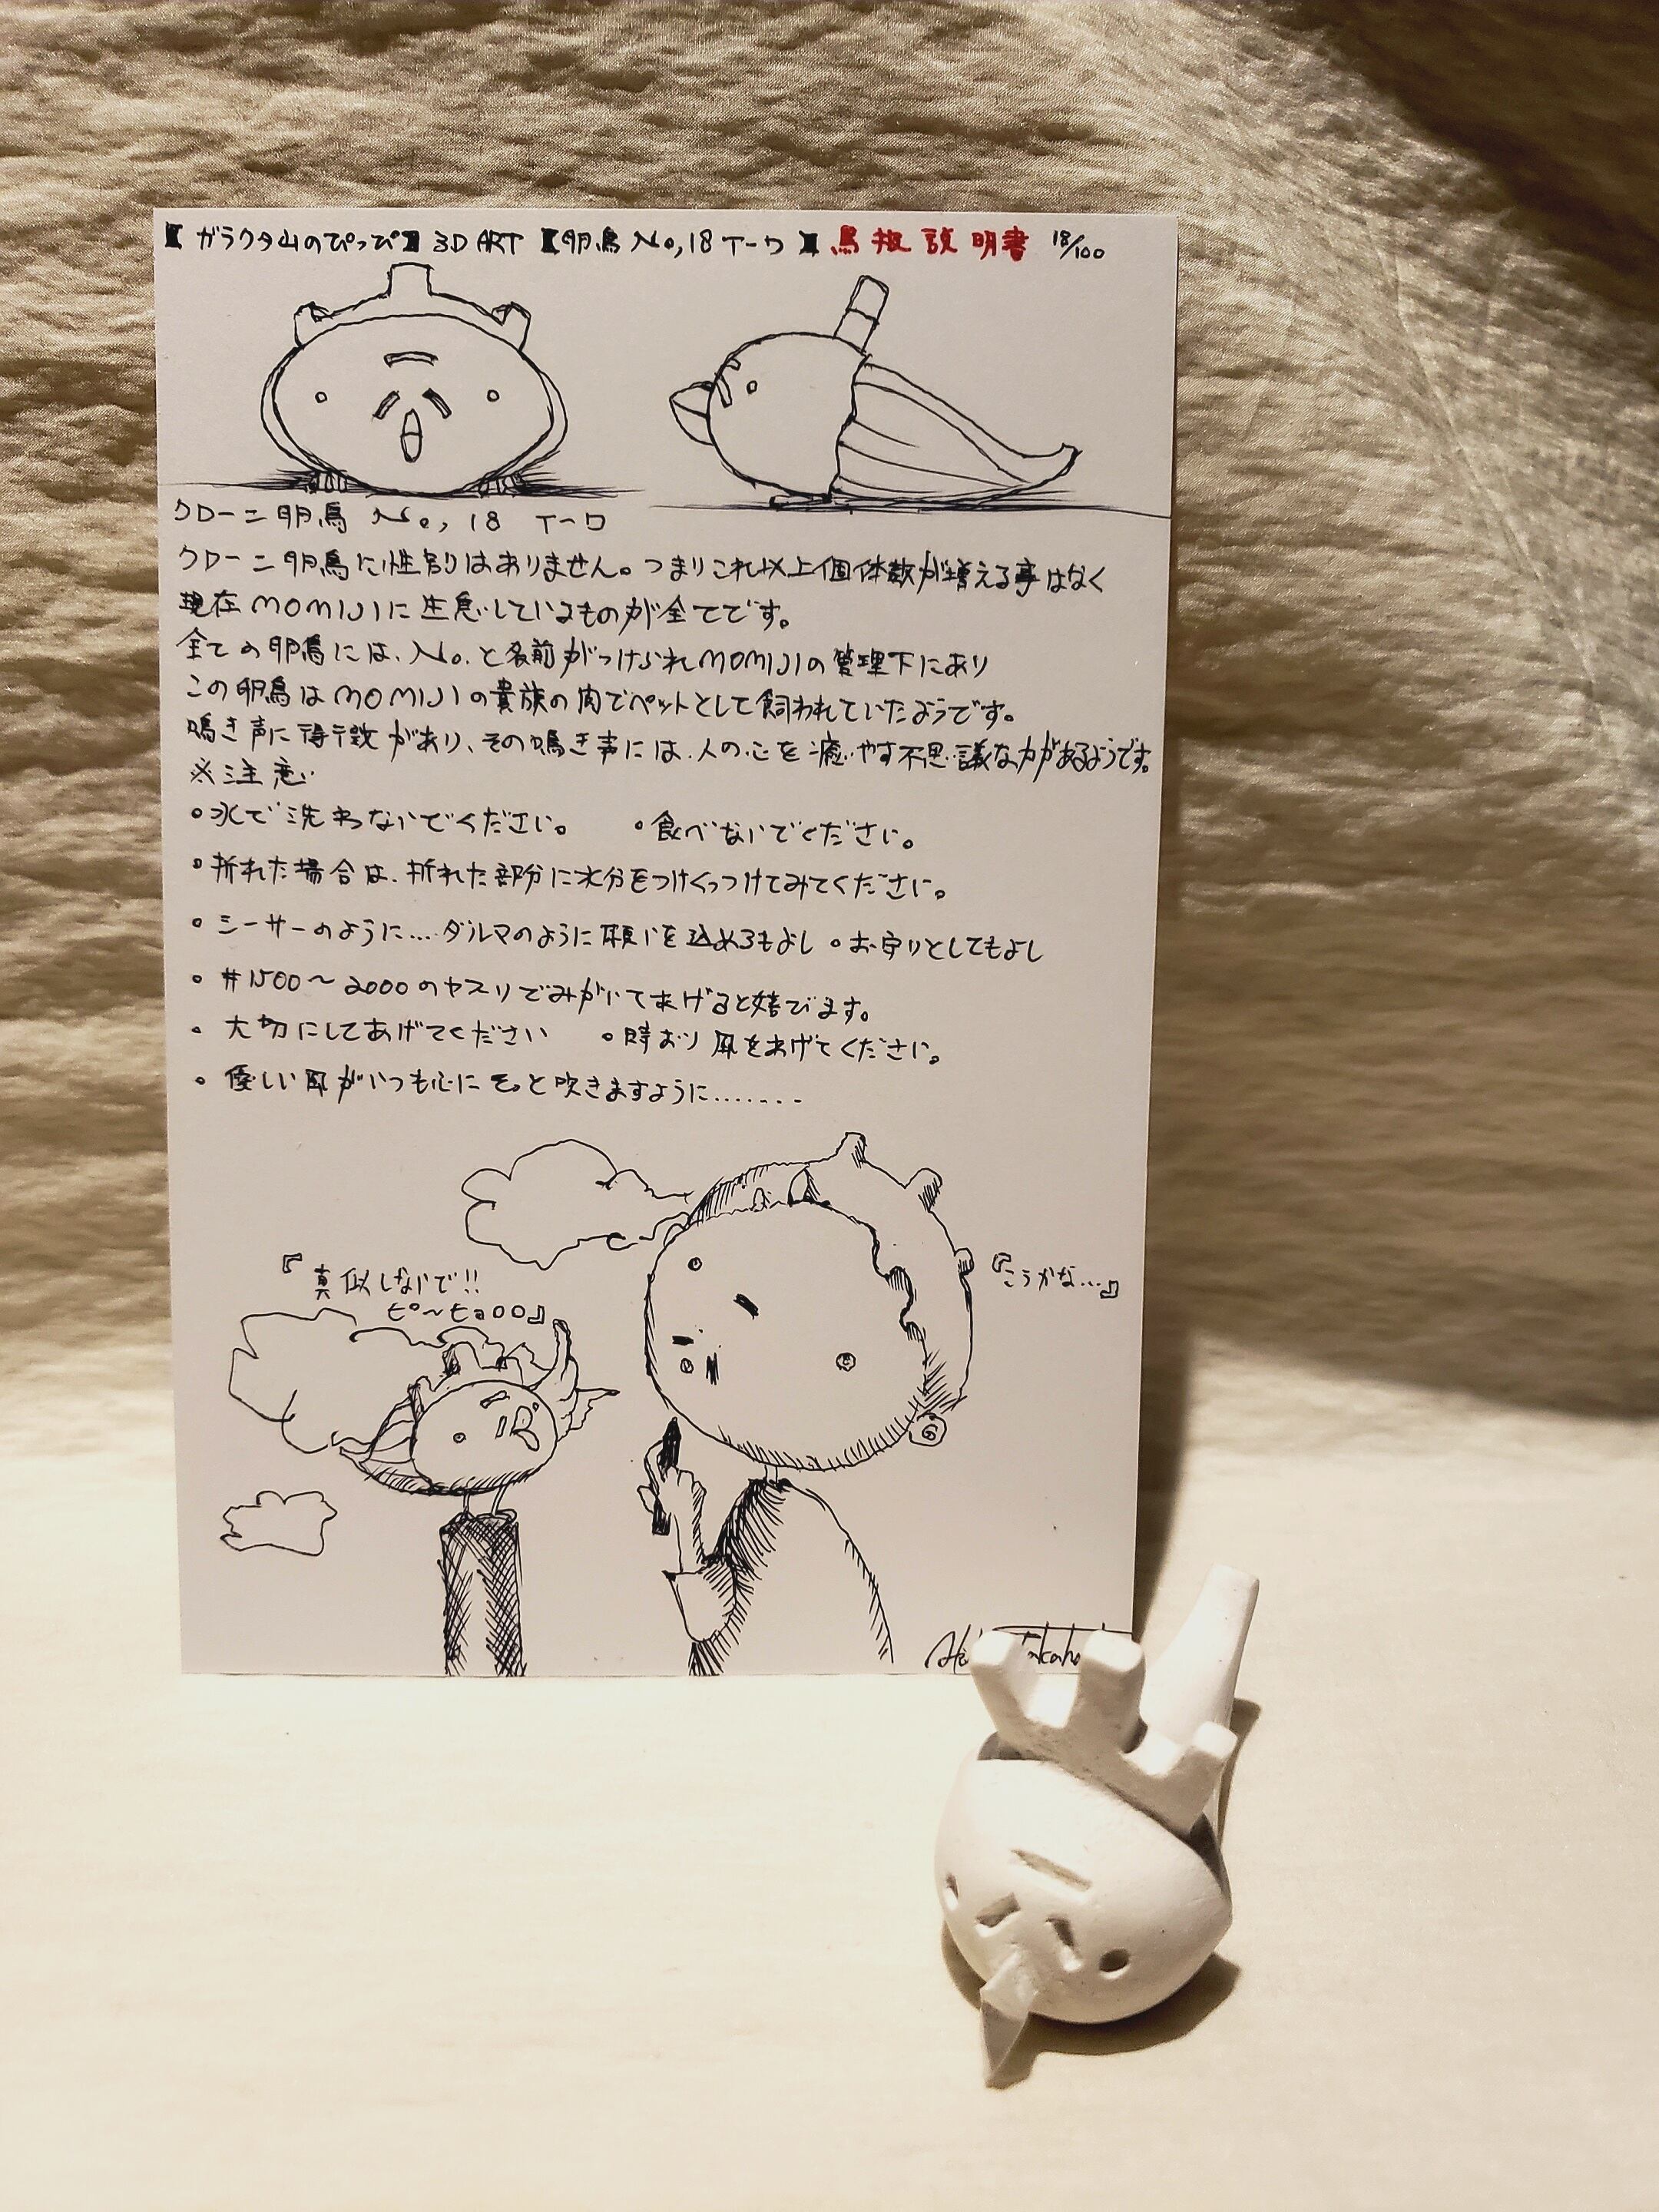 【ガラクタ山のぴっぴ】3D ART【卵鳥No,18 T-ワ】鳥扱説明書 18/100
クローン卵鳥 No, 18 T-ワ
クローン卵鳥に性別はありません。つまりこれ以上個体数が増える事はなく
現在MOMIJIに生息しているものが全てです。
全ての卵鳥には、No.と名前がつけられMOMIJIの管理下にあり
この卵鳥はMOMIJIの貴族の内でペットとして飼われていたようです。
鳴き声に特徴があり、その鳴き声には、人の心を癒やす不思議な力があるようです。
※注意
・水で洗わないでください。 ・食べないでください。
・折れた場合は、折れた部分に水分をつけくっつけてみてください。
・シーサーのように…ダルマのように願いを込めるもよし ・お守りとしてもよし
・#1500〜2000のヤスリでみがいてあげると喜びます。
・大切にしてあげてください ・時おり風をあげてください。
・優しい風がいつも心にそっと吹きますように.......
『真似しないで!!
『こうかな…』